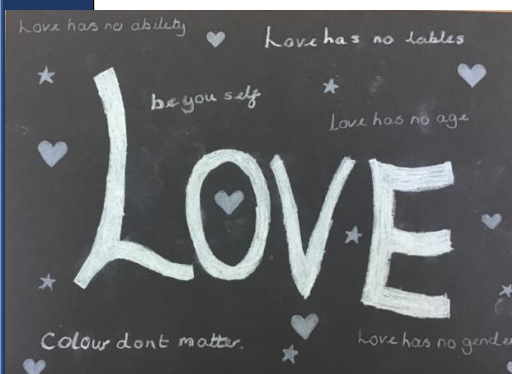 Love has no ability
Love has no lables
be you self
Love has no age
LOVE
Colour dont matter.
Love has no gender